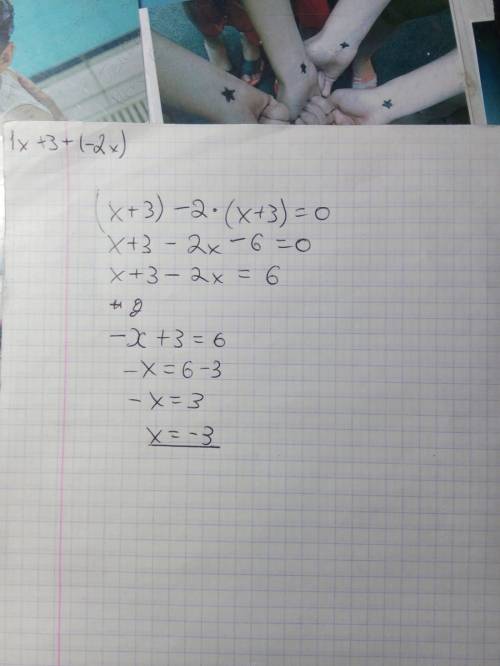 1x+3+(-2x)
(x+3)-2·(x+3)=0
x+3-2x-6=0
x+3-2x=6
-x+3=6
-x=6-3
-x=3
x=-3